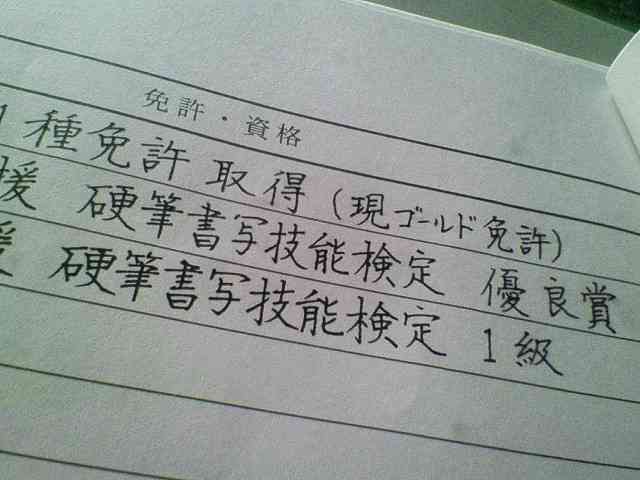 免許・資格
1種免許 取得 (現ゴールド免許)
援 硬筆書写技能検定 優良賞
硬筆書写技能検定 1級